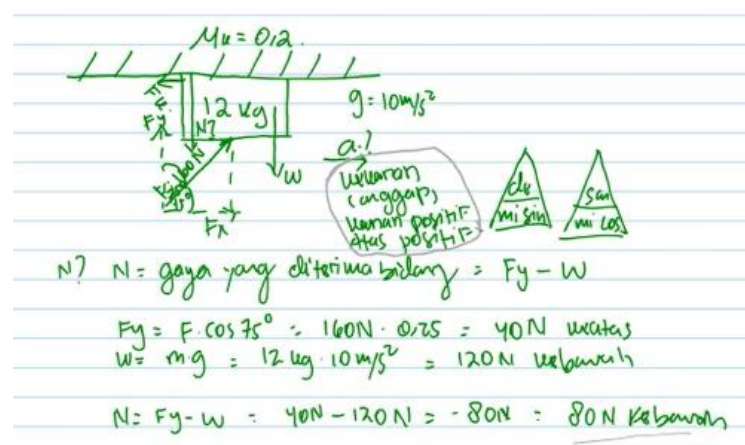 μk = 0,2
12 kg
g = 10 m/s²
Fy
N?
W
a.?
kekanan
(anggap,
kanan positif
atas positif
de
mi sin
sa
mi cos
Fx
N? N = gaya yang diterima bidang = Fy - W
Fy = F. cos 75° = 160N . 0,25 = 40N keatas
W = m.g = 12 kg . 10 m/s² = 120N kebawah
N = Fy - W = 40N - 120N = -80N = 80N kebawah